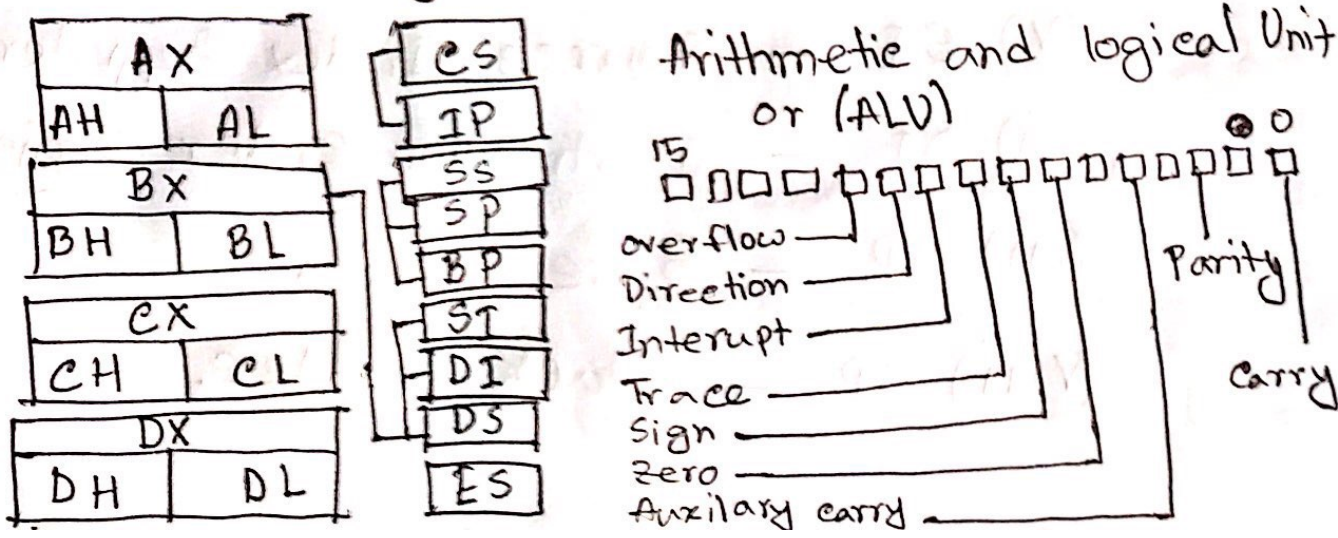 AX
AH AL
BX
BH BL
CX
CH CL
DX
DH DL
CS
IP
SS
SP
BP
SI
DI
DS
ES
Arithmetic and logical Unit
or (ALU)
15 0
overflow
Direction
Interupt
Trace
Sign
Zero
Auxilary carry
Parity
Carry